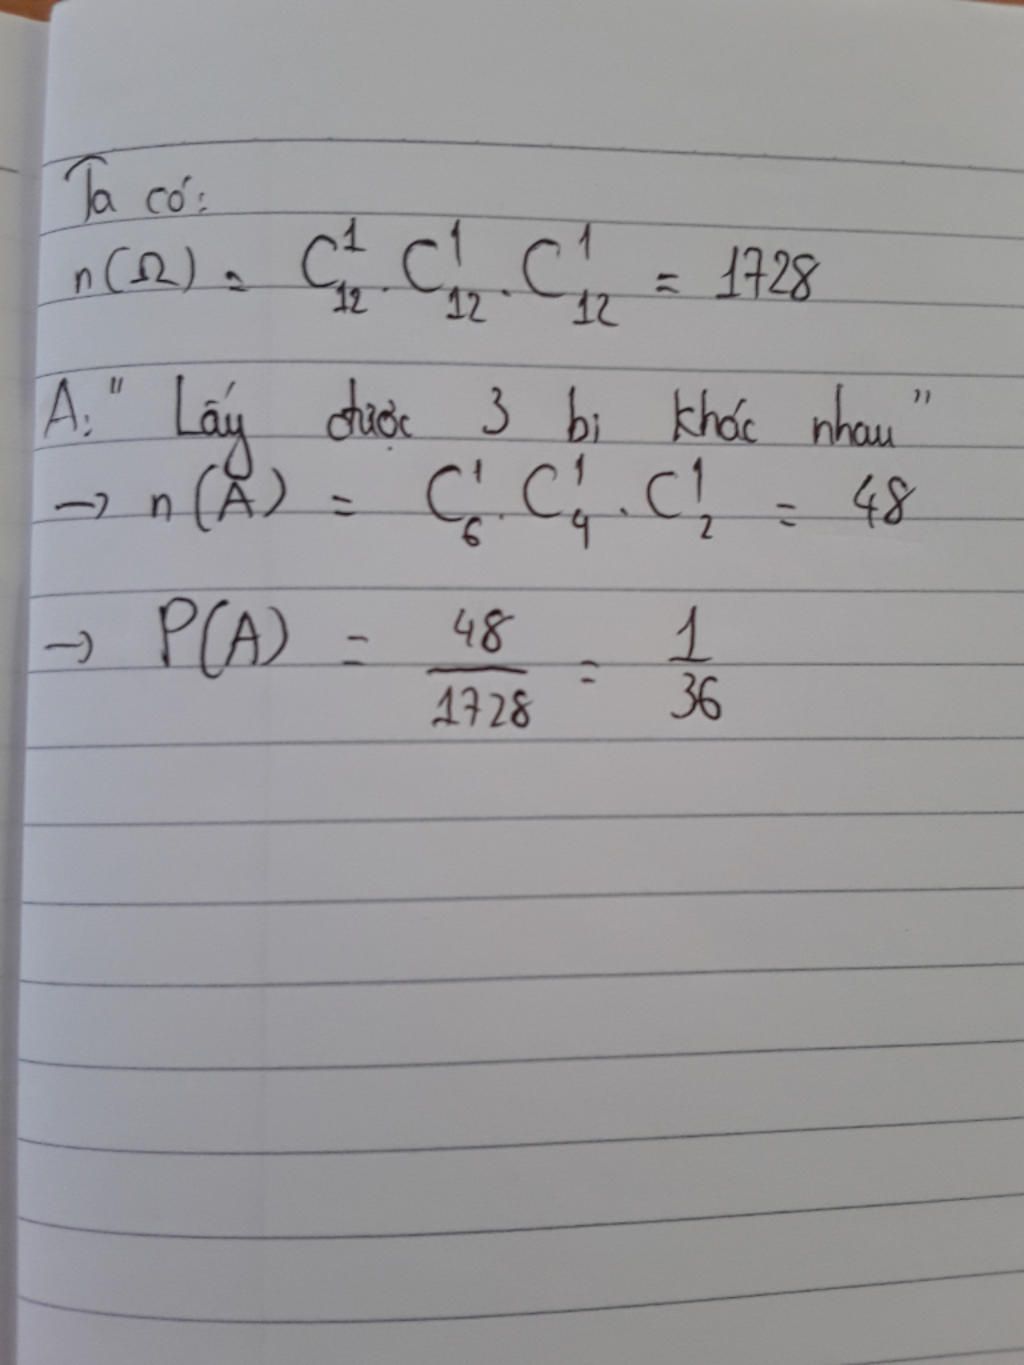 Ta có:
n(Ω) = C¹₁₂ . C¹₁₂ . C¹₁₂ = 1728
A: " Lấy được 3 bi khác nhau "
→ n(A) = C¹₆ . C¹₄ . C¹₂ = 48
→ P(A) = 48/1728 = 1/36